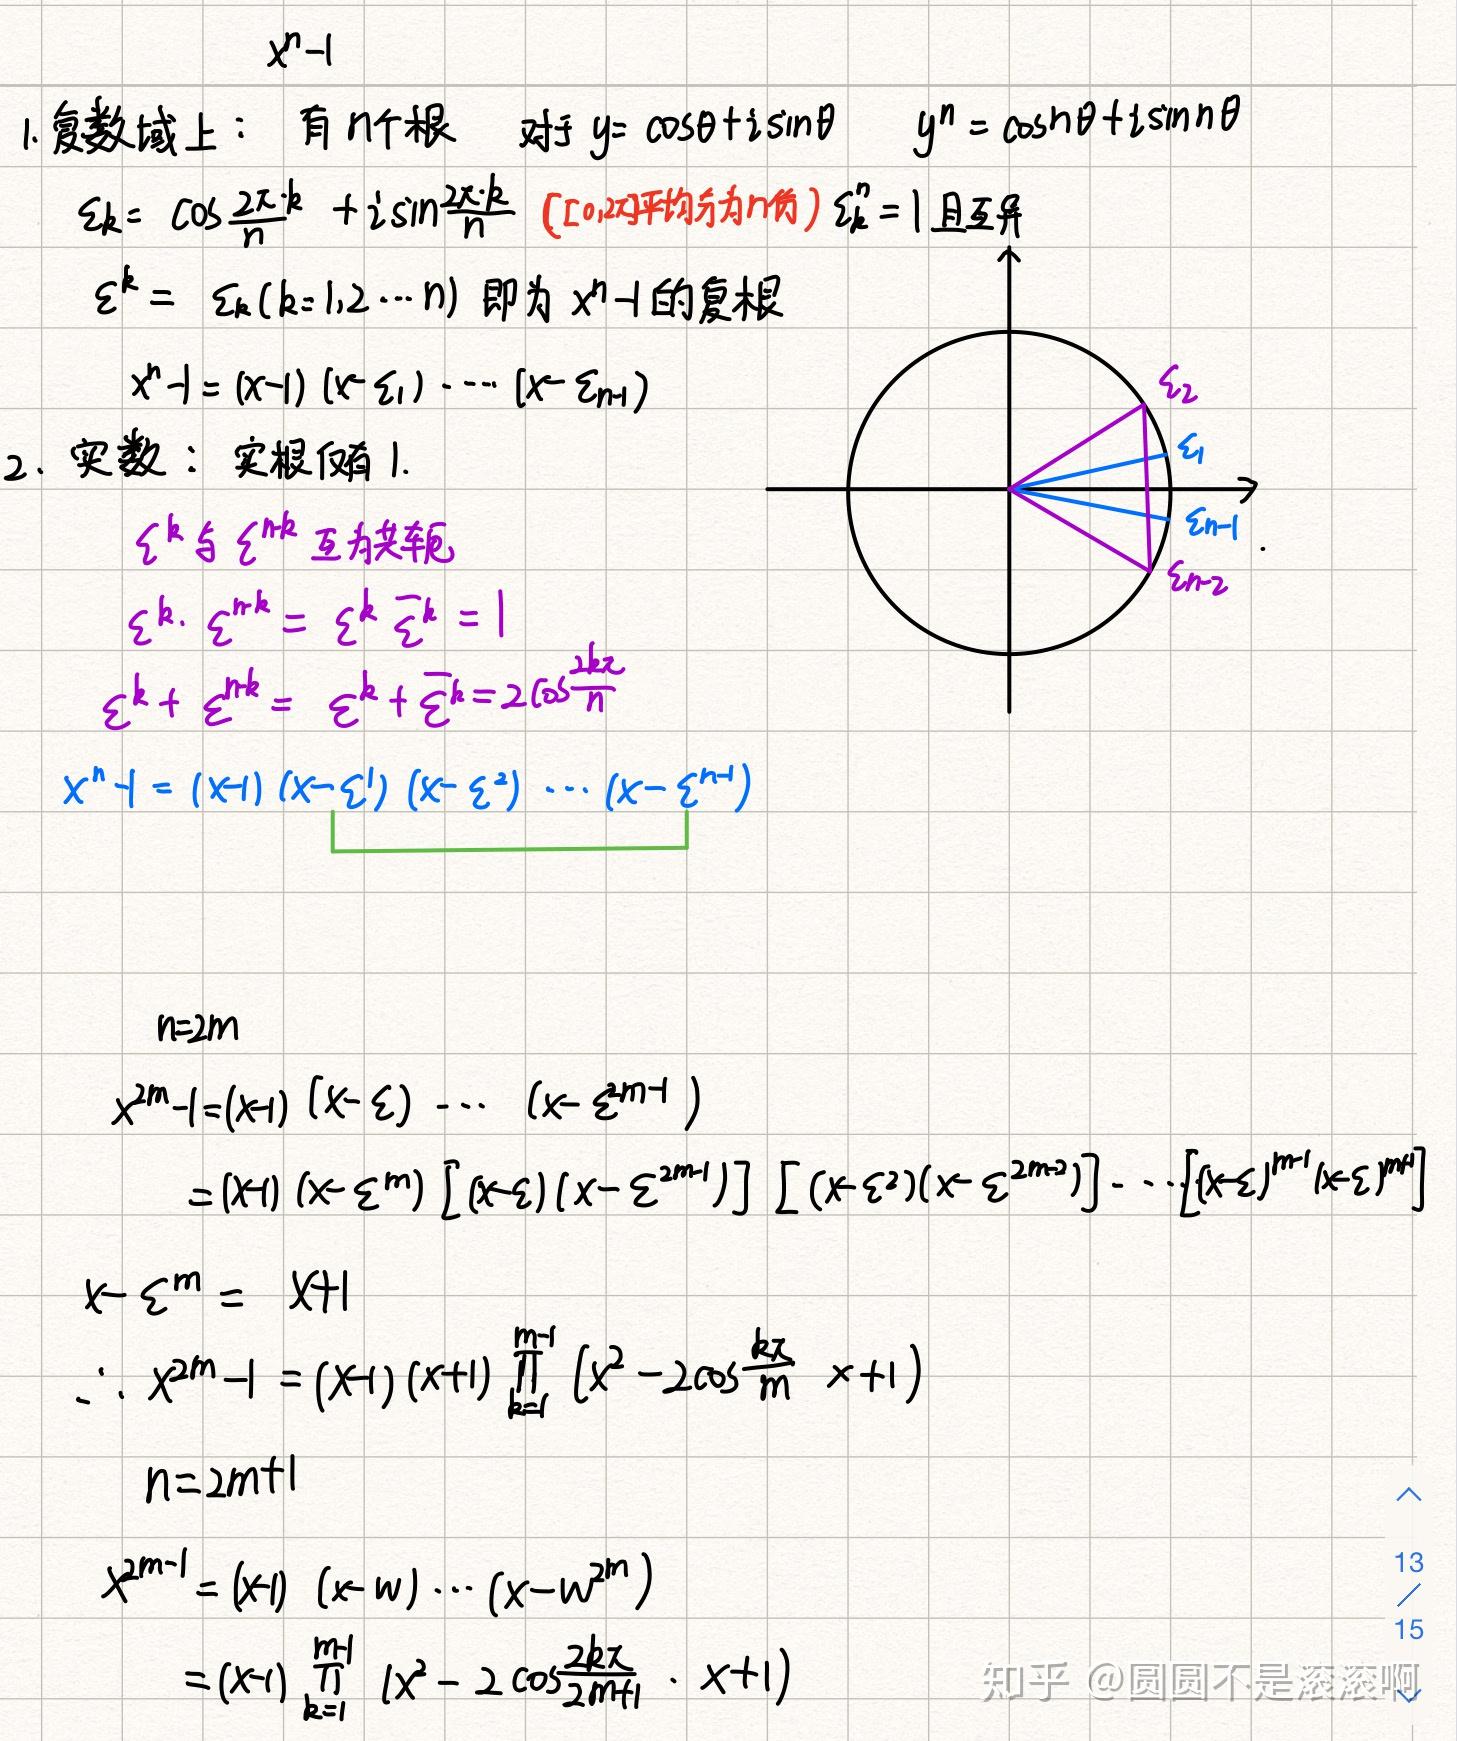 xⁿ-1
1. 复数域上： 有n个根 对于 y= cosθ+isinθ yⁿ = cosnθ+isinnθ
ε_k = cos \frac{2π·k}{n} + i sin \frac{2π·k}{n} ([0,2π]平均分为n份) ε_k^n = 1 且互异
ε^k = ε_k (k=1,2…n) 即为 xⁿ-1 的复根
xⁿ-1 = (x-1) (x-ε_1) ····· (x-ε_{n-1})
2. 实数： 实根仅有1.
ε^k 与 ε^{n-k} 互为共轭
ε^k · ε^{n-k} = ε^k \bar{ε}^k = 1
ε^k + ε^{n-k} = ε^k + \bar{ε}^k = 2cos\frac{2kπ}{n}
xⁿ-1 = (x-1) (x-ε^1) (x-ε^2) ··· (x-ε^{n-1})
ε_2
ε_1
ε_{n-1}
ε_{n-2}
n=2m
x^{2m}-1=(x-1) (x-ε) ··· (x-ε^{2m-1})
=(x-1) (x-ε^m) [(x-ε)(x-ε^{2m-1})] [(x-ε^2)(x-ε^{2m-2})] ····· [(x-ε)^{m-1}(x-ε)^{m+1}]
x-ε^m = x+1
∴ x^{2m}-1 = (x-1)(x+1) \prod_{k=1}^{m-1} (x^2 - 2cos\frac{kπ}{m} x+1)
n=2m+1
x^{2m-1} = (x-1) (x-w) ··· (x-w^{2m})
=(x-1) \prod_{k=1}^{m-1} (x^2 - 2cos\frac{2kπ}{2m+1} · x+1)
13
/
15
知乎 @圆圆不是滚滚啊